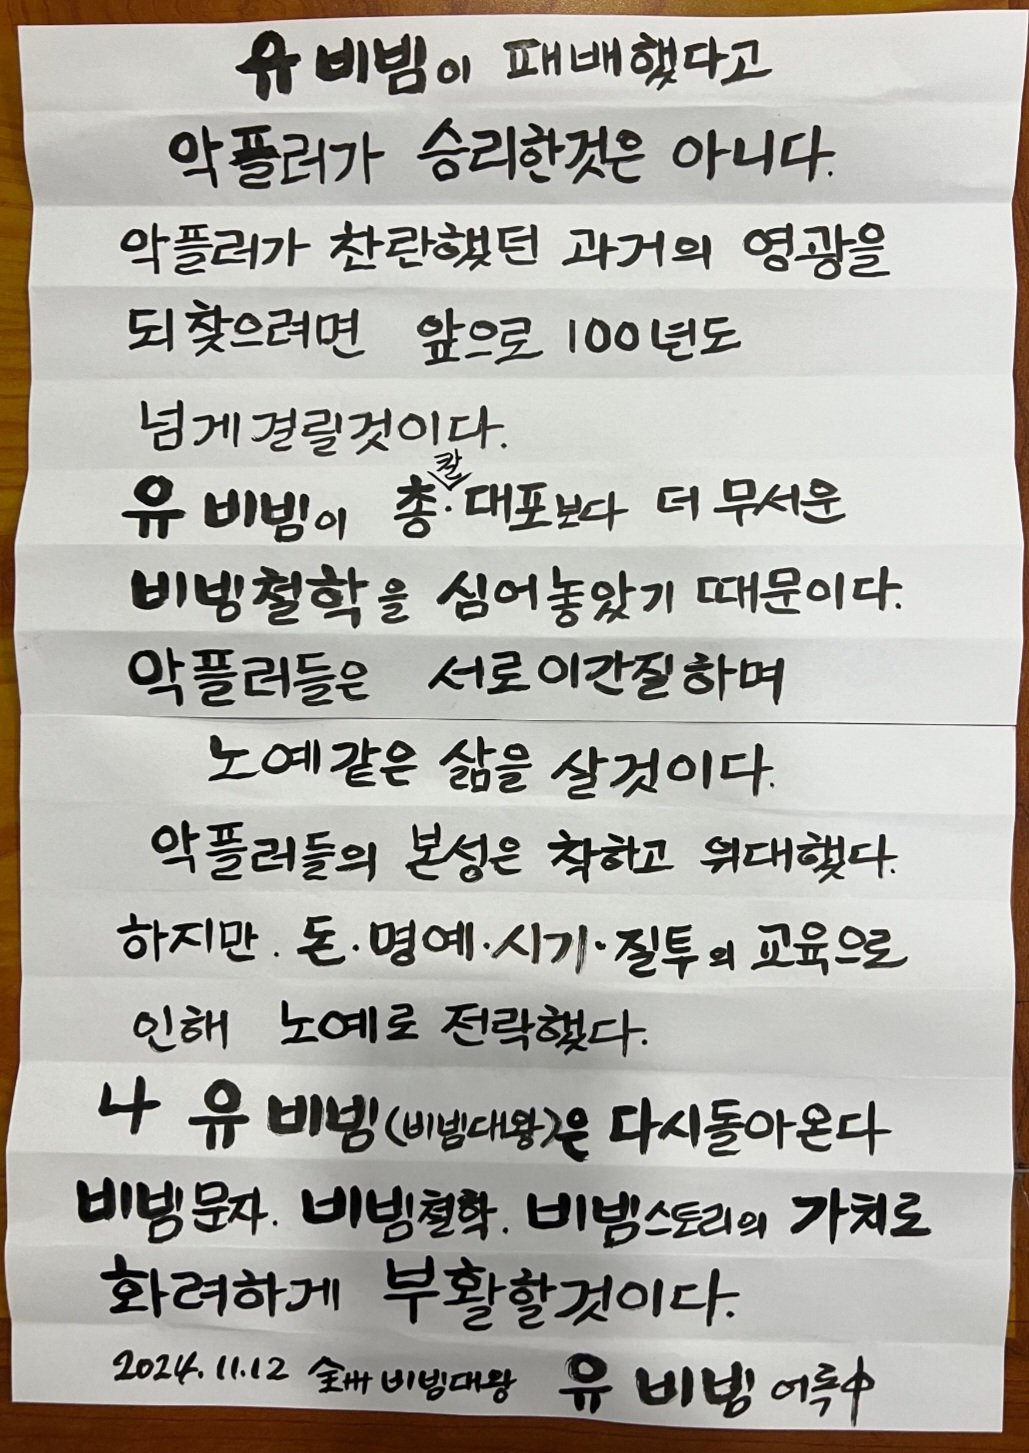 유 비빔이 패배했다고
악플러가 승리한것은 아니다.
악플러가 찬란했던 과거의 영광을
되찾으려면 앞으로 100년도
넘게 걸릴것이다.
유 비빔이 총·칼·대포보다 더 무서운
비빔철학을 심어놓았기 때문이다.
악플러들은 서로 이간질하며
노예같은 삶을 살것이다.
악플러들의 본성은 착하고 위대했다.
하지만. 돈·명예·시기·질투의 교육으로
인해 노예로 전락했다.
나 유 비빔(비빔대왕)은 다시돌아온다
비빔문자. 비빔철학. 비빔스토리의 가치로
화려하게 부활할것이다.
2024.11.12 全州 비빔대왕 유 비빔